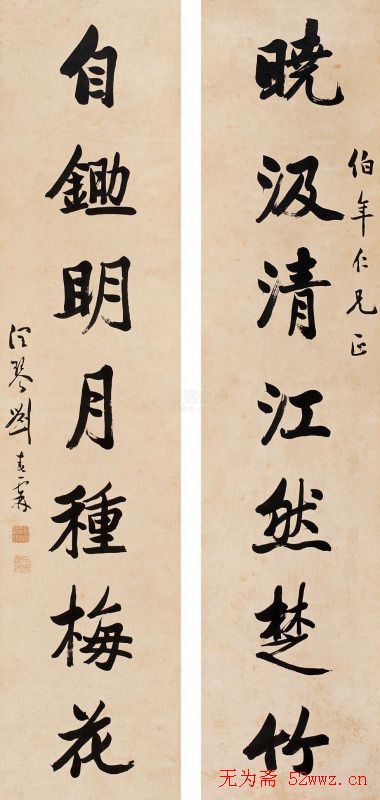 伯年仁兄正
曉汲清江然楚竹
自鋤明月種梅花
潤琴劉春霖
无为斋 52wwz.cn